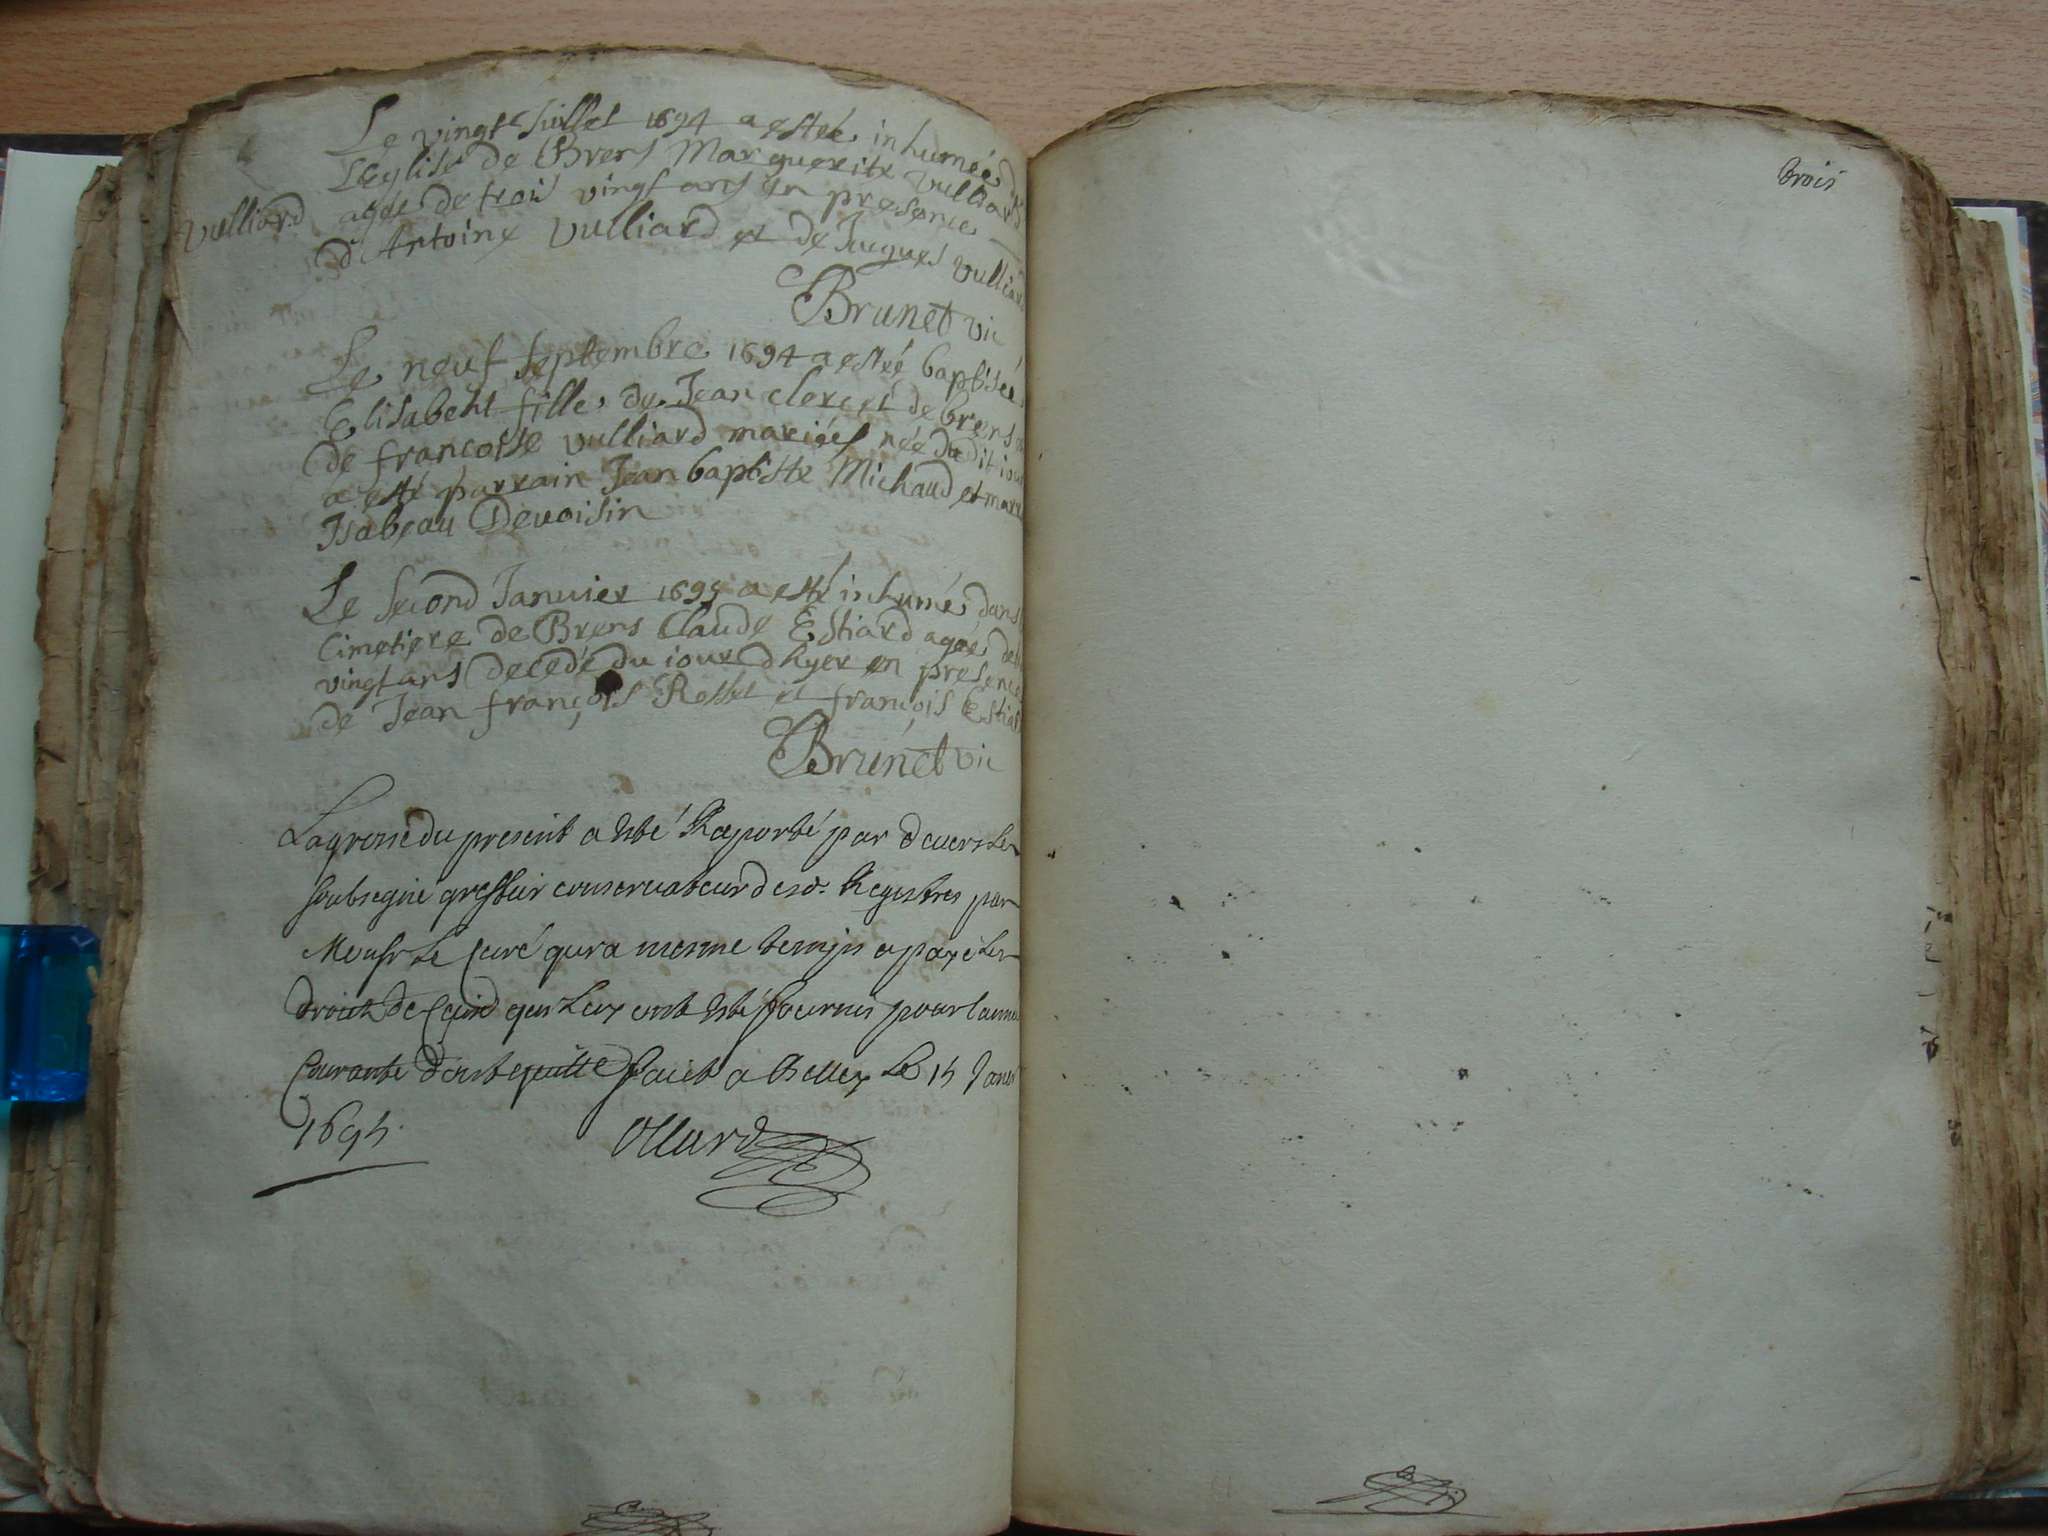 Le vingt Juillet 1694 a estée inhumée d
L'eglise de Brens Marguerite Vulliard
Vulliard
agée de trois vingt ans en presence
d'Antoine Vulliard et de Jacques Vulliar
Brunet vic
Le neuf Septembre 1694 a estée baptisée
Elisabeht fille de Jean Clercet de brens et
de francoise vulliard mariés née du dit iour
a esté parrain Jean baptiste Michaud et marr
Isabeau Devoisin
Le second Januier 1695 a esté inhumé dans
Cimetiere de Brens Claude Estiard agée de
vingt ans decedé du iour d'hyer en presence
de Jean françois Rosset et françois Estiar
Brunet vic
La grosse du present a esté Raporté par deuers Le
soubsigné greffier conseruateur desd. Registres par
Monsr Le Curé qui a mesme temps a payé Les
droits de qui Luy ont esté fournis pour l'anné
Courante dont quitte fait a Belley Le 15 Janer
1695.
Ollard
trois